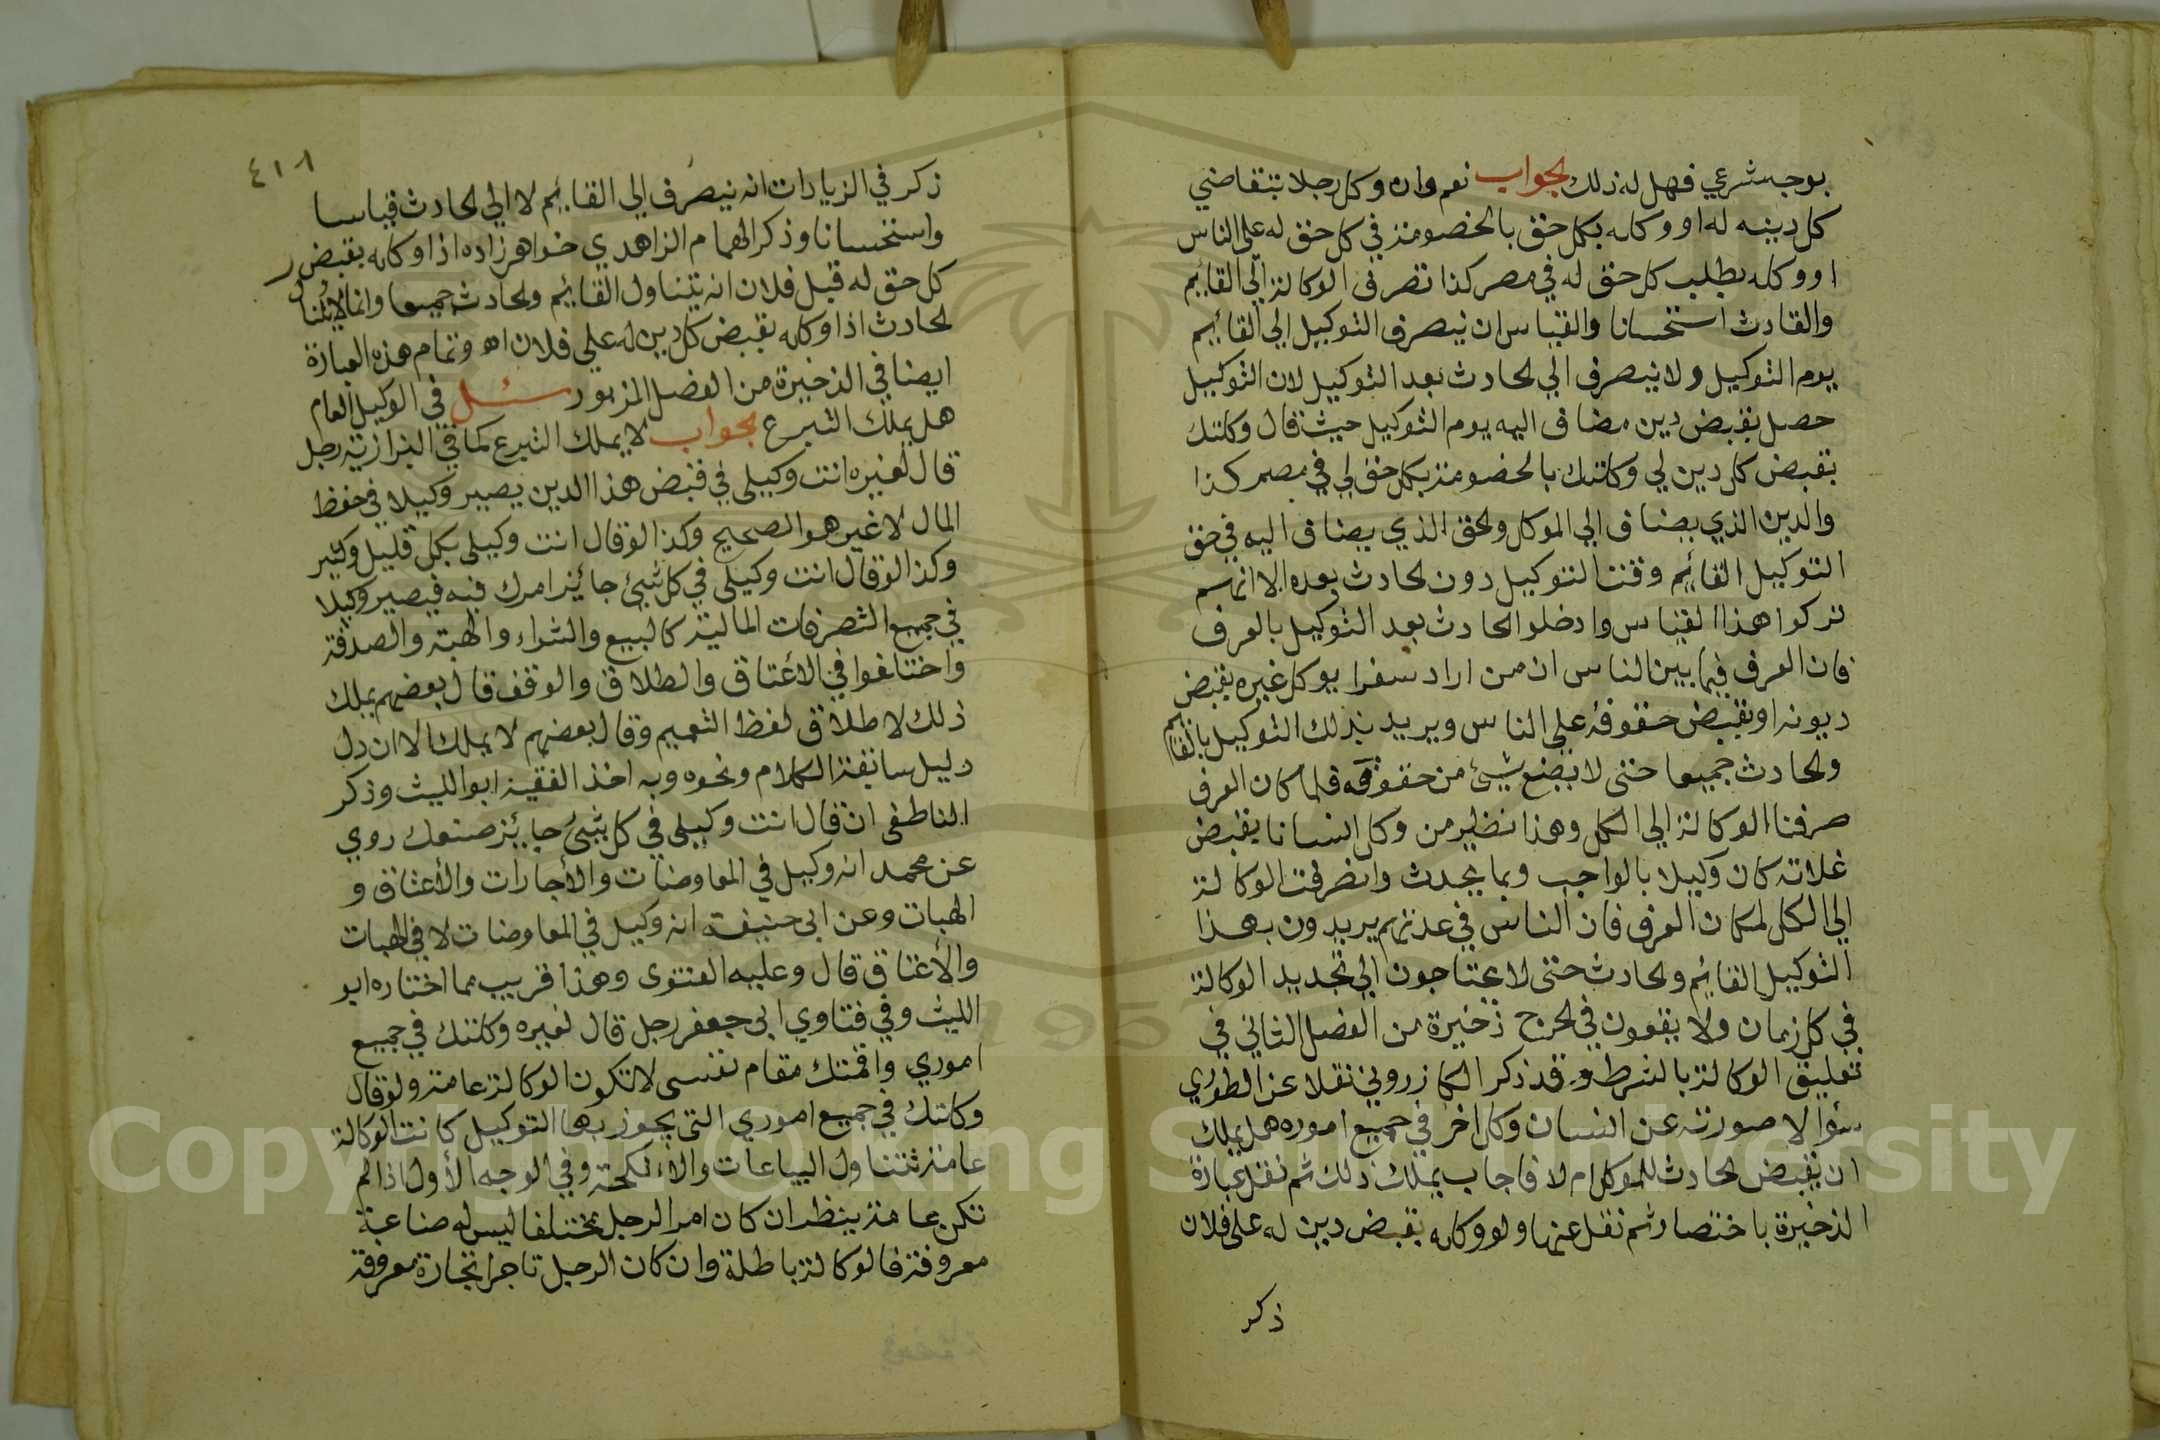 بوجه شرعي فهل له ذلك الجواب نعم وان وكل رجلا بتقاضي
كل دينه له او وكله بكل حق بالخصومة في كل حق له على الناس
او وكله بطلب كل حق له في مصر كذا تصرف الوكالة الي القايم
والقادث استحسانا والقياس ان ينصرف التوكيل الي القايم
يوم التوكيل ولا ينصرف الي الحادث بعد التوكيل لان التوكيل
حصل بقبض دين مضاف اليه يوم التوكيل حيث قال وكلتك
بقبض كل دين لي وكلتك بالخصومة بكل حق لي في مصر كذا
والدين الذي يضاف الي الموكل والحق الذي يضاف اليه في حق
التوكيل القايم وقت التوكيل دون الحادث بعده الا انهم
تركوا هذا القياس وادخلوا الحادث بعد التوكيل بالعرف
فان العرف فيما بين الناس ان من اراد سفرا يوكل غيره بقبض
ديونه او بقبض حقوقه على الناس ويريد بذلك التوكيل بالقايم
والحادث جميعا حتى لا يضع شيئ من حقوقه فلما كان العرف
صرفنا الوكالة الي الكل وهذا نظير من وكل انسانا بقبض
غلاته كان وكيلا بالواجب وبما يحدث وانصرفت الوكالة
الي الكل لمكان العرف فان الناس في عدتهم يريدون بهذا
التوكيل القايم والحادث حتى لا يحتاجون الي تجديد الوكالة
في كل زمان ولا يقعون في الحرج ذخيرة من الفصل الثاني في
تعليق الوكالة بالشرط وقد ذكر الكازروني نقلا عن الطوري
سئوالا صورته عن انسان وكل اخر في جميع اموره هل يملك
ان يقبض الحادث للموكل ام لا فاجاب يملك ذلك ثم نقل عبارة
الذخيرة باختصار ثم نقل عنها ولو وكله بقبض دين له على فلان
ذكر
٤١٨
ذكر في الزيادات انه ينصرف الي القايم لا الي الحادث قياسا
واستحسانا وذكر الهمام الزاهدي خواهر زاده اذا وكله بقبض
كل حق له قبل فلان انه يتناول القايم والحادث جميعا وانما لا يتناول
الحادث اذا وكله بقبض كل دين له على فلان اه وتمام هذه العبارة
ايضا في الذخيرة من الفصل المزبور سئل في الوكيل العام
هل يملك التبرع الجواب لا يملك التبرع كما في البزازية رجل
قال لغيره انت وكيلي في قبض هذا الدين يصير وكيلا في حفظ
المال لا غير هو الصحيح وكذا لو قال انت وكيلي بكل قليل وكثير
وكذا لو قال انت وكيلي في كل شيئ جائز امرك فيه فيصير وكيلا
في جميع التصرفات المالية كالبيع والشراء والهبة والصدقة
واختلفوا في الاعتاق والطلاق والوقف قال بعضهم يملك
ذلك لاطلاق لفظ التعميم وقال بعضهم لا يملك الا ان دل
دليل سابقة الكلام ونحوه وبه اخذ الفقيه ابو الليث وذكر
الناطفي ان قال انت وكيلي في كل شيئ جايز صنعك روي
عن محمد انه وكيل في المعاوضات والأجارات والأعتاق و
الهبات وعن ابي حنيفة انه وكيل في المعاوضات لا في الهبات
والأعتاق قال وعليه الفتوى وهذا قريب مما اختاره ابو
الليث وفي فتاوي ابي جعفر رجل قال لغيره وكلتك في جميع
اموري واقمتك مقام نفسي لا تكون الوكالة عامة ولو قال
وكلتك في جميع اموري التي يجوز بها التوكيل كانت الوكالة
عامة تتناول البياعات والأنكحة وفي الوجه الأول اذا لم
تكن عامة ينظر ان كان امر الرجل مختلفا ليس له صناعة
معروفة فالوكالة باطلة وان كان الرجل تاجرا تجارة معروفة
Copyright © King Saud University
1957